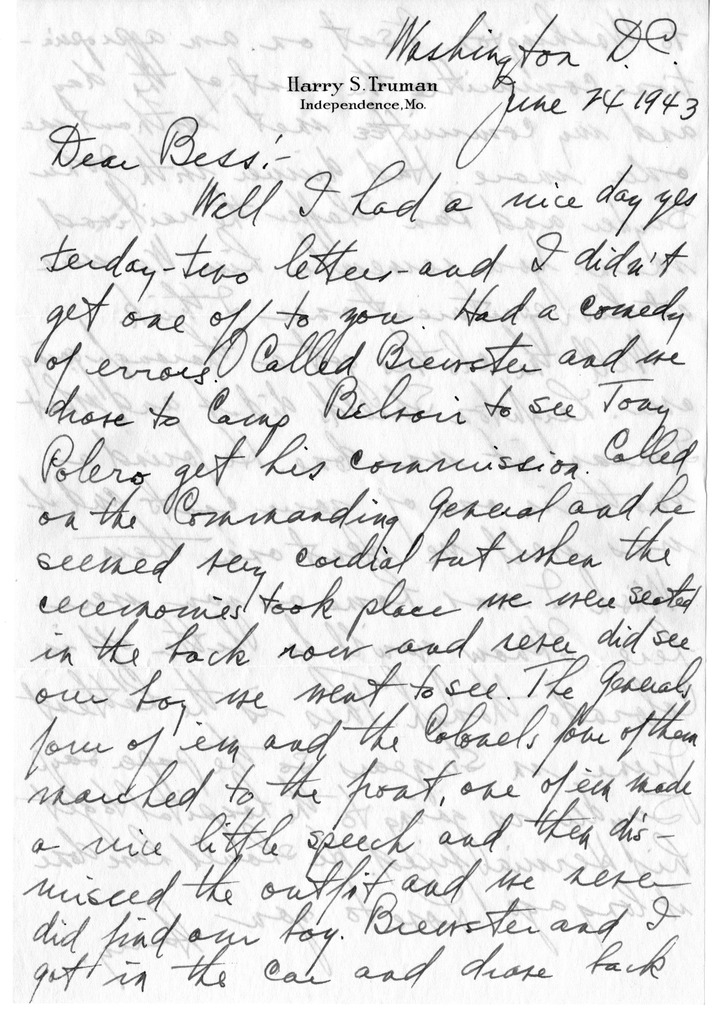 Washington D.C.
Harry S. Truman
Independence, Mo.
June 24 1943
Dear Bess:-
Well I had a nice day yes
terday-two letters-and I didn't
get one off to you. Had a comedy
of errors. Called Brewster and we
drove to Camp Belvoir to see Tony
Polero get his commission. Called
on the Commanding General and he
seemed very cordial but when the
ceremonies took place we were seated
in the back row and never did see
our boy we went to see. The Generals,
four of 'em and the Colonels four of them
marched to the front, one of em made
a nice little speech and then dis-
missed the outfit and we never
did find our boy. Brewster and I
got in the car and drove back